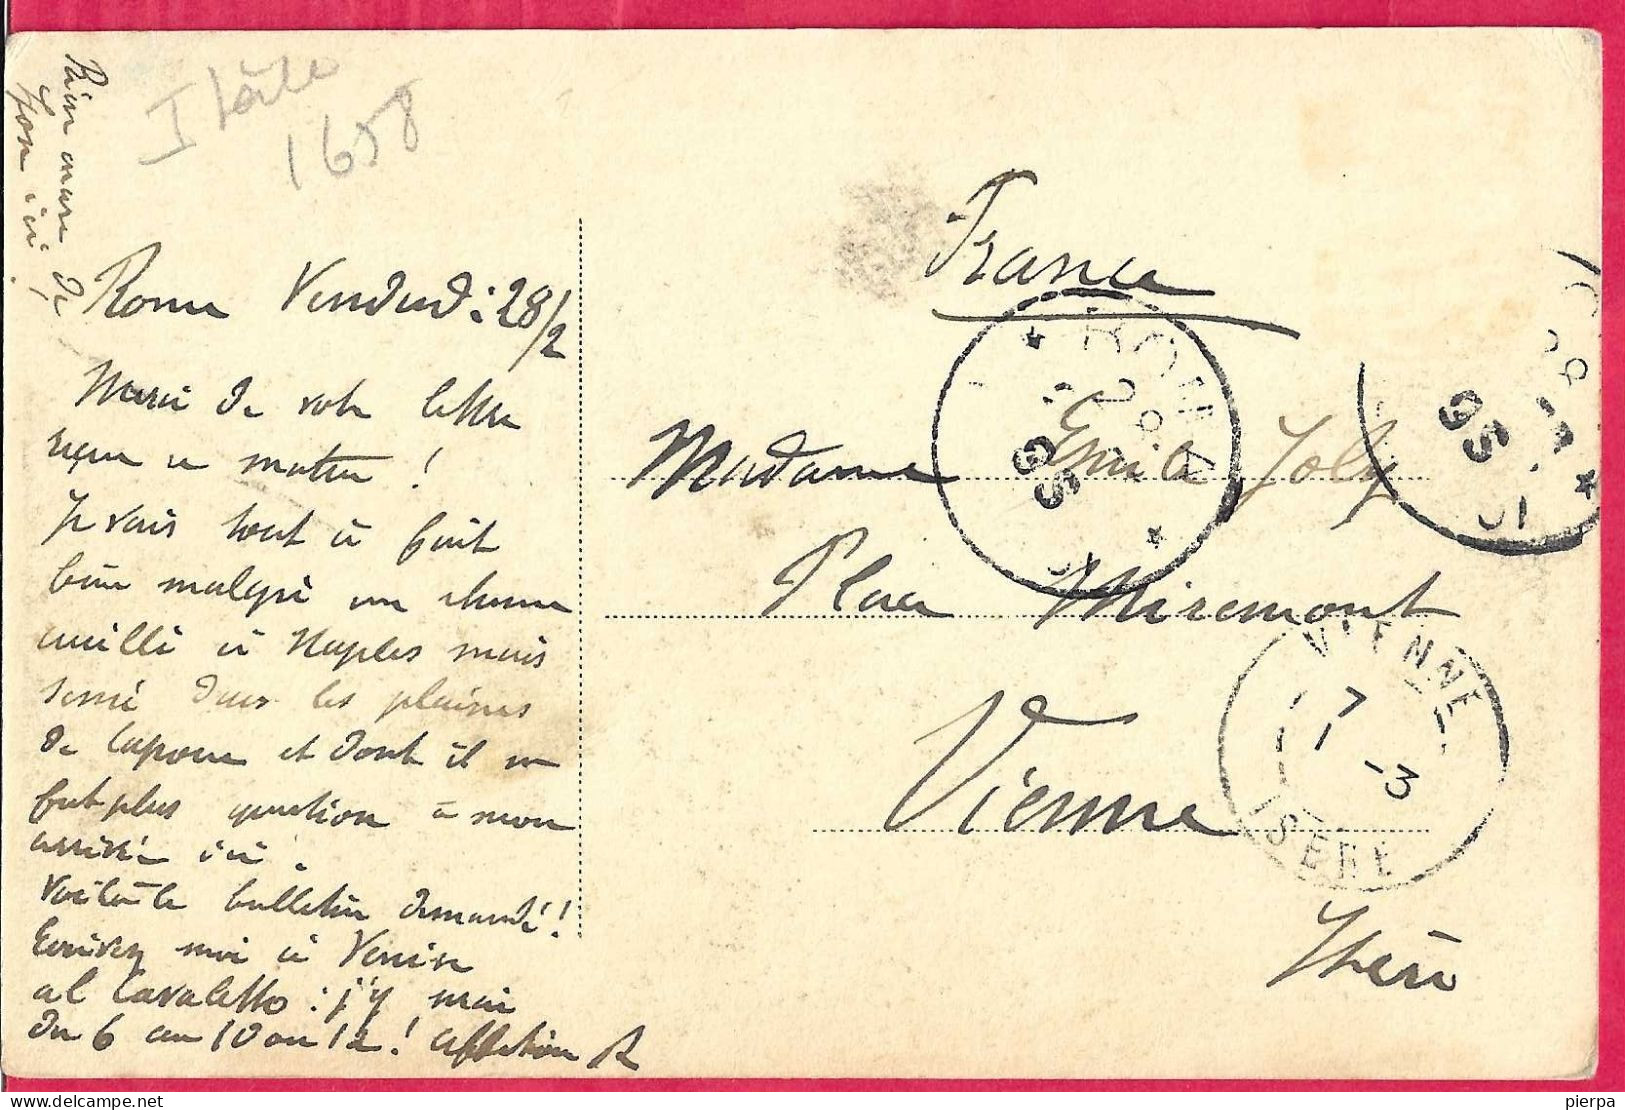 Rien encore de
Lyon ici.
Itálie
1658
Rome Vendredi 28/2
Merci de votre lettre
reçue ce matin !
Je vais tout à fait
bien malgré un rhume
cueilli à Naples mais
semé dans les plaines
de Capoue et dont il ne
fut plus question à mon
arrivée ici.
Voilà le bulletin demandé !!
Ecrivez moi à Venise
al Cavaletto : j'y serai
du 6 au 10 ou 12 ! affection R
France
Madame Emile Joly
Place Miremont
Vienne
Isère
ROMA
VIENNE
7
-3
ISERE
pierpa